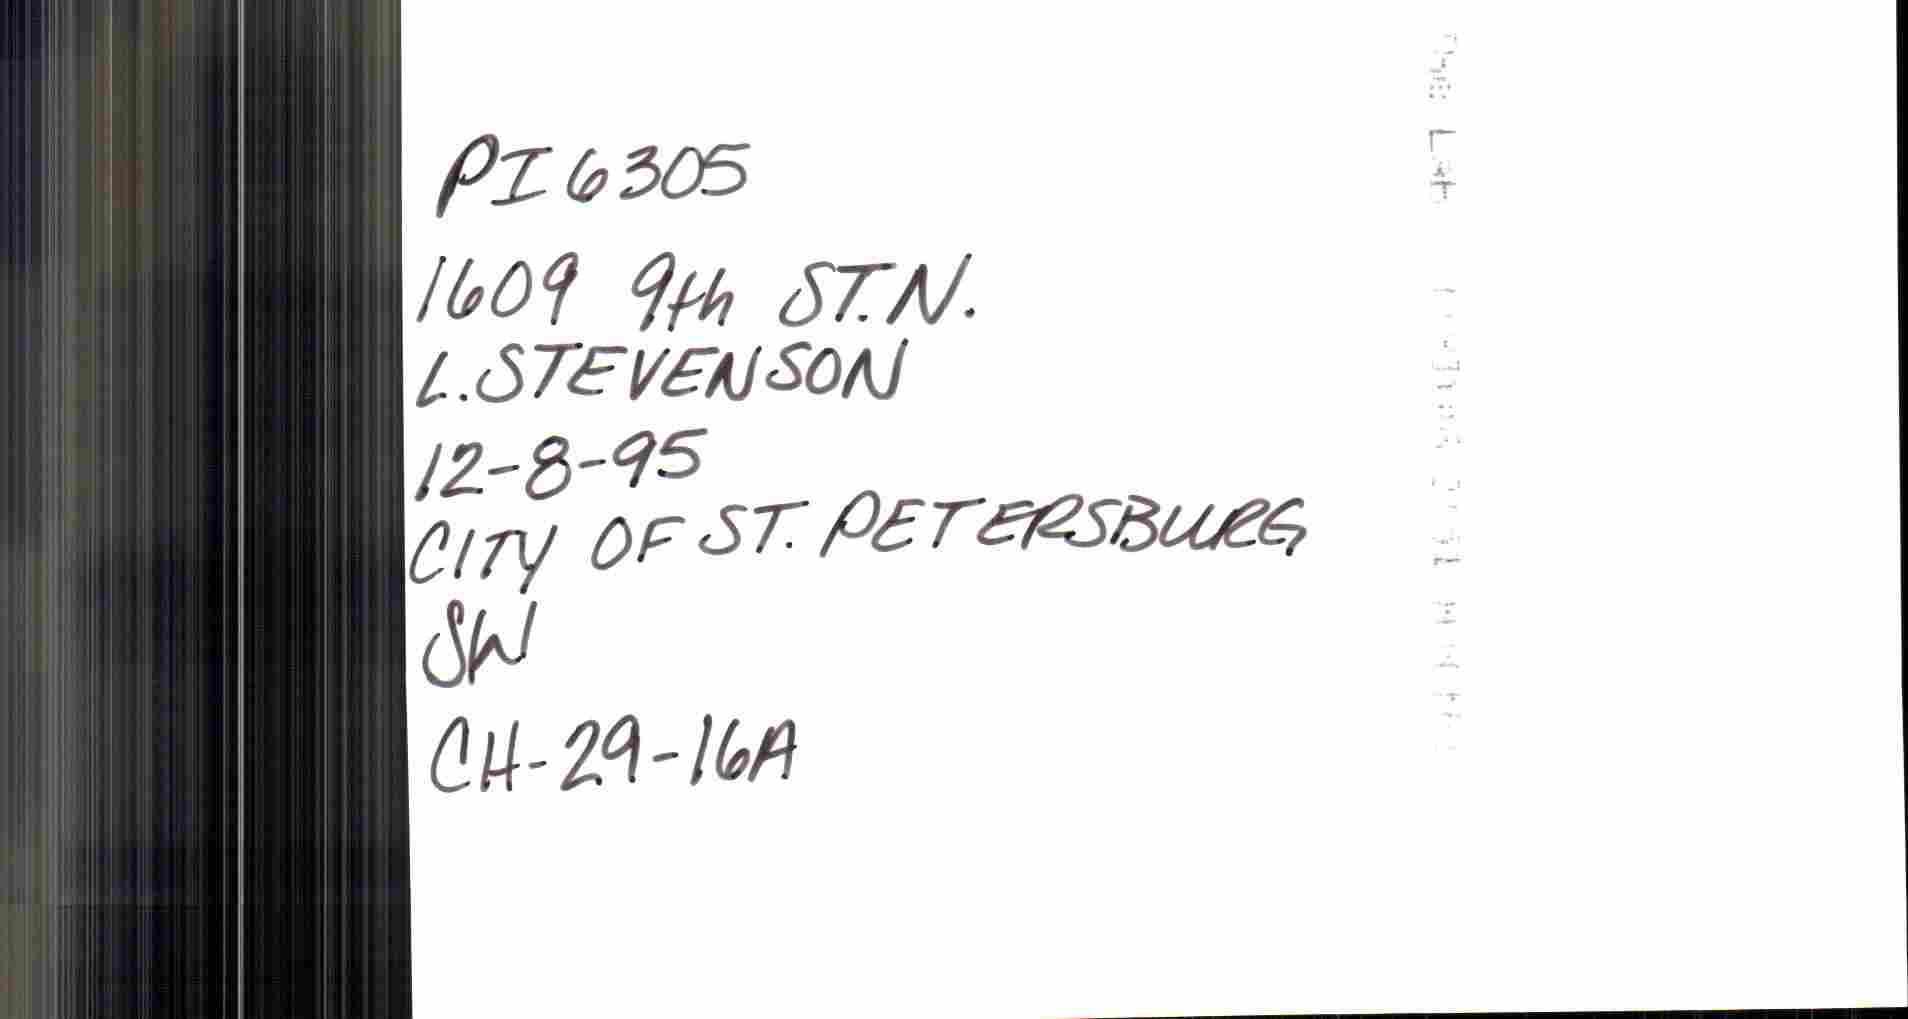 PI6305
1609 9th ST. N.
L. STEVENSON
12-8-95
CITY OF ST. PETERSBURG
SW
CH-29-16A